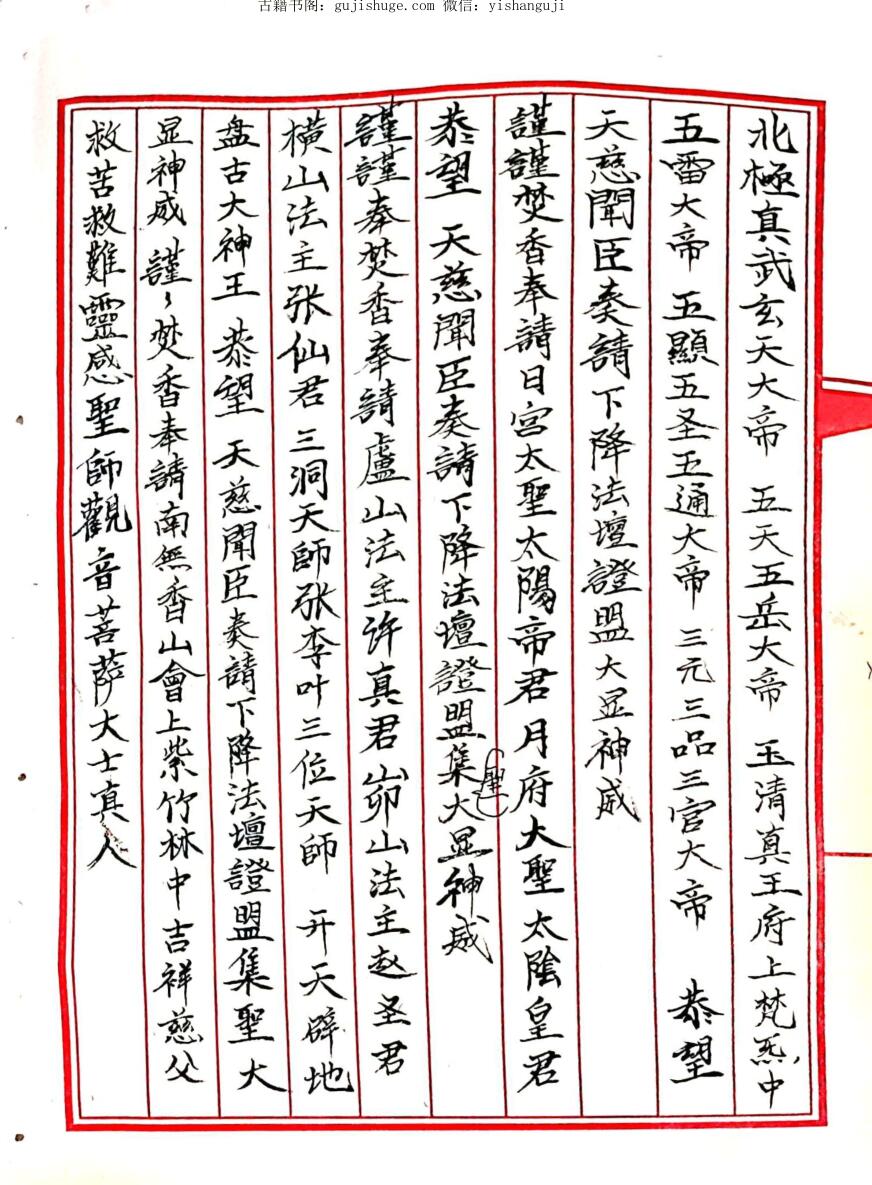 古籍书阁：gujishuge.com 微信：yishanguji
北極真武玄天大帝 五天五岳大帝 玉清真王府上梵炁中
五雷大帝 五顯五圣五通大帝 三元三品三官大帝 恭望
天慈聞臣奏請下降法壇證盟大显神威
謹謹焚香奉請日宫太聖太陽帝君月府大聖太陰皇君
恭望 天慈聞臣奏請下降法壇證盟集聖大显神威
謹謹奉焚香奉請廬山法主许真君 卯山法主赵圣君
橫山法主张仙君 三洞天師张李叶三位天師 开天辟地
盘古大神王 恭望 天慈聞臣奏請下降法壇證盟集聖大
显神威 謹〻焚香奉請南無香山會上紫竹林中吉祥慈父
救苦救難靈感聖師觀音菩薩大士真人